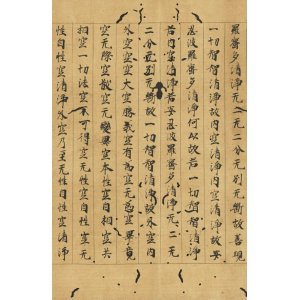 羅蜜多清淨无二无二分无別无斷故善現
一切智智清淨故內空清淨內空清淨故安
忍波羅蜜多清淨何以故若一切智智清淨
若內空清淨若安忍波羅蜜多清淨无二无
二分无別无斷故一切智智清淨故外空內
外空空空大空勝義空有為空无為空畢竟
空无際空散空无變異空本性空自相空共
相空一切法空不可得空无性空自性空无
性自性空清淨外空乃至无性自性空清淨